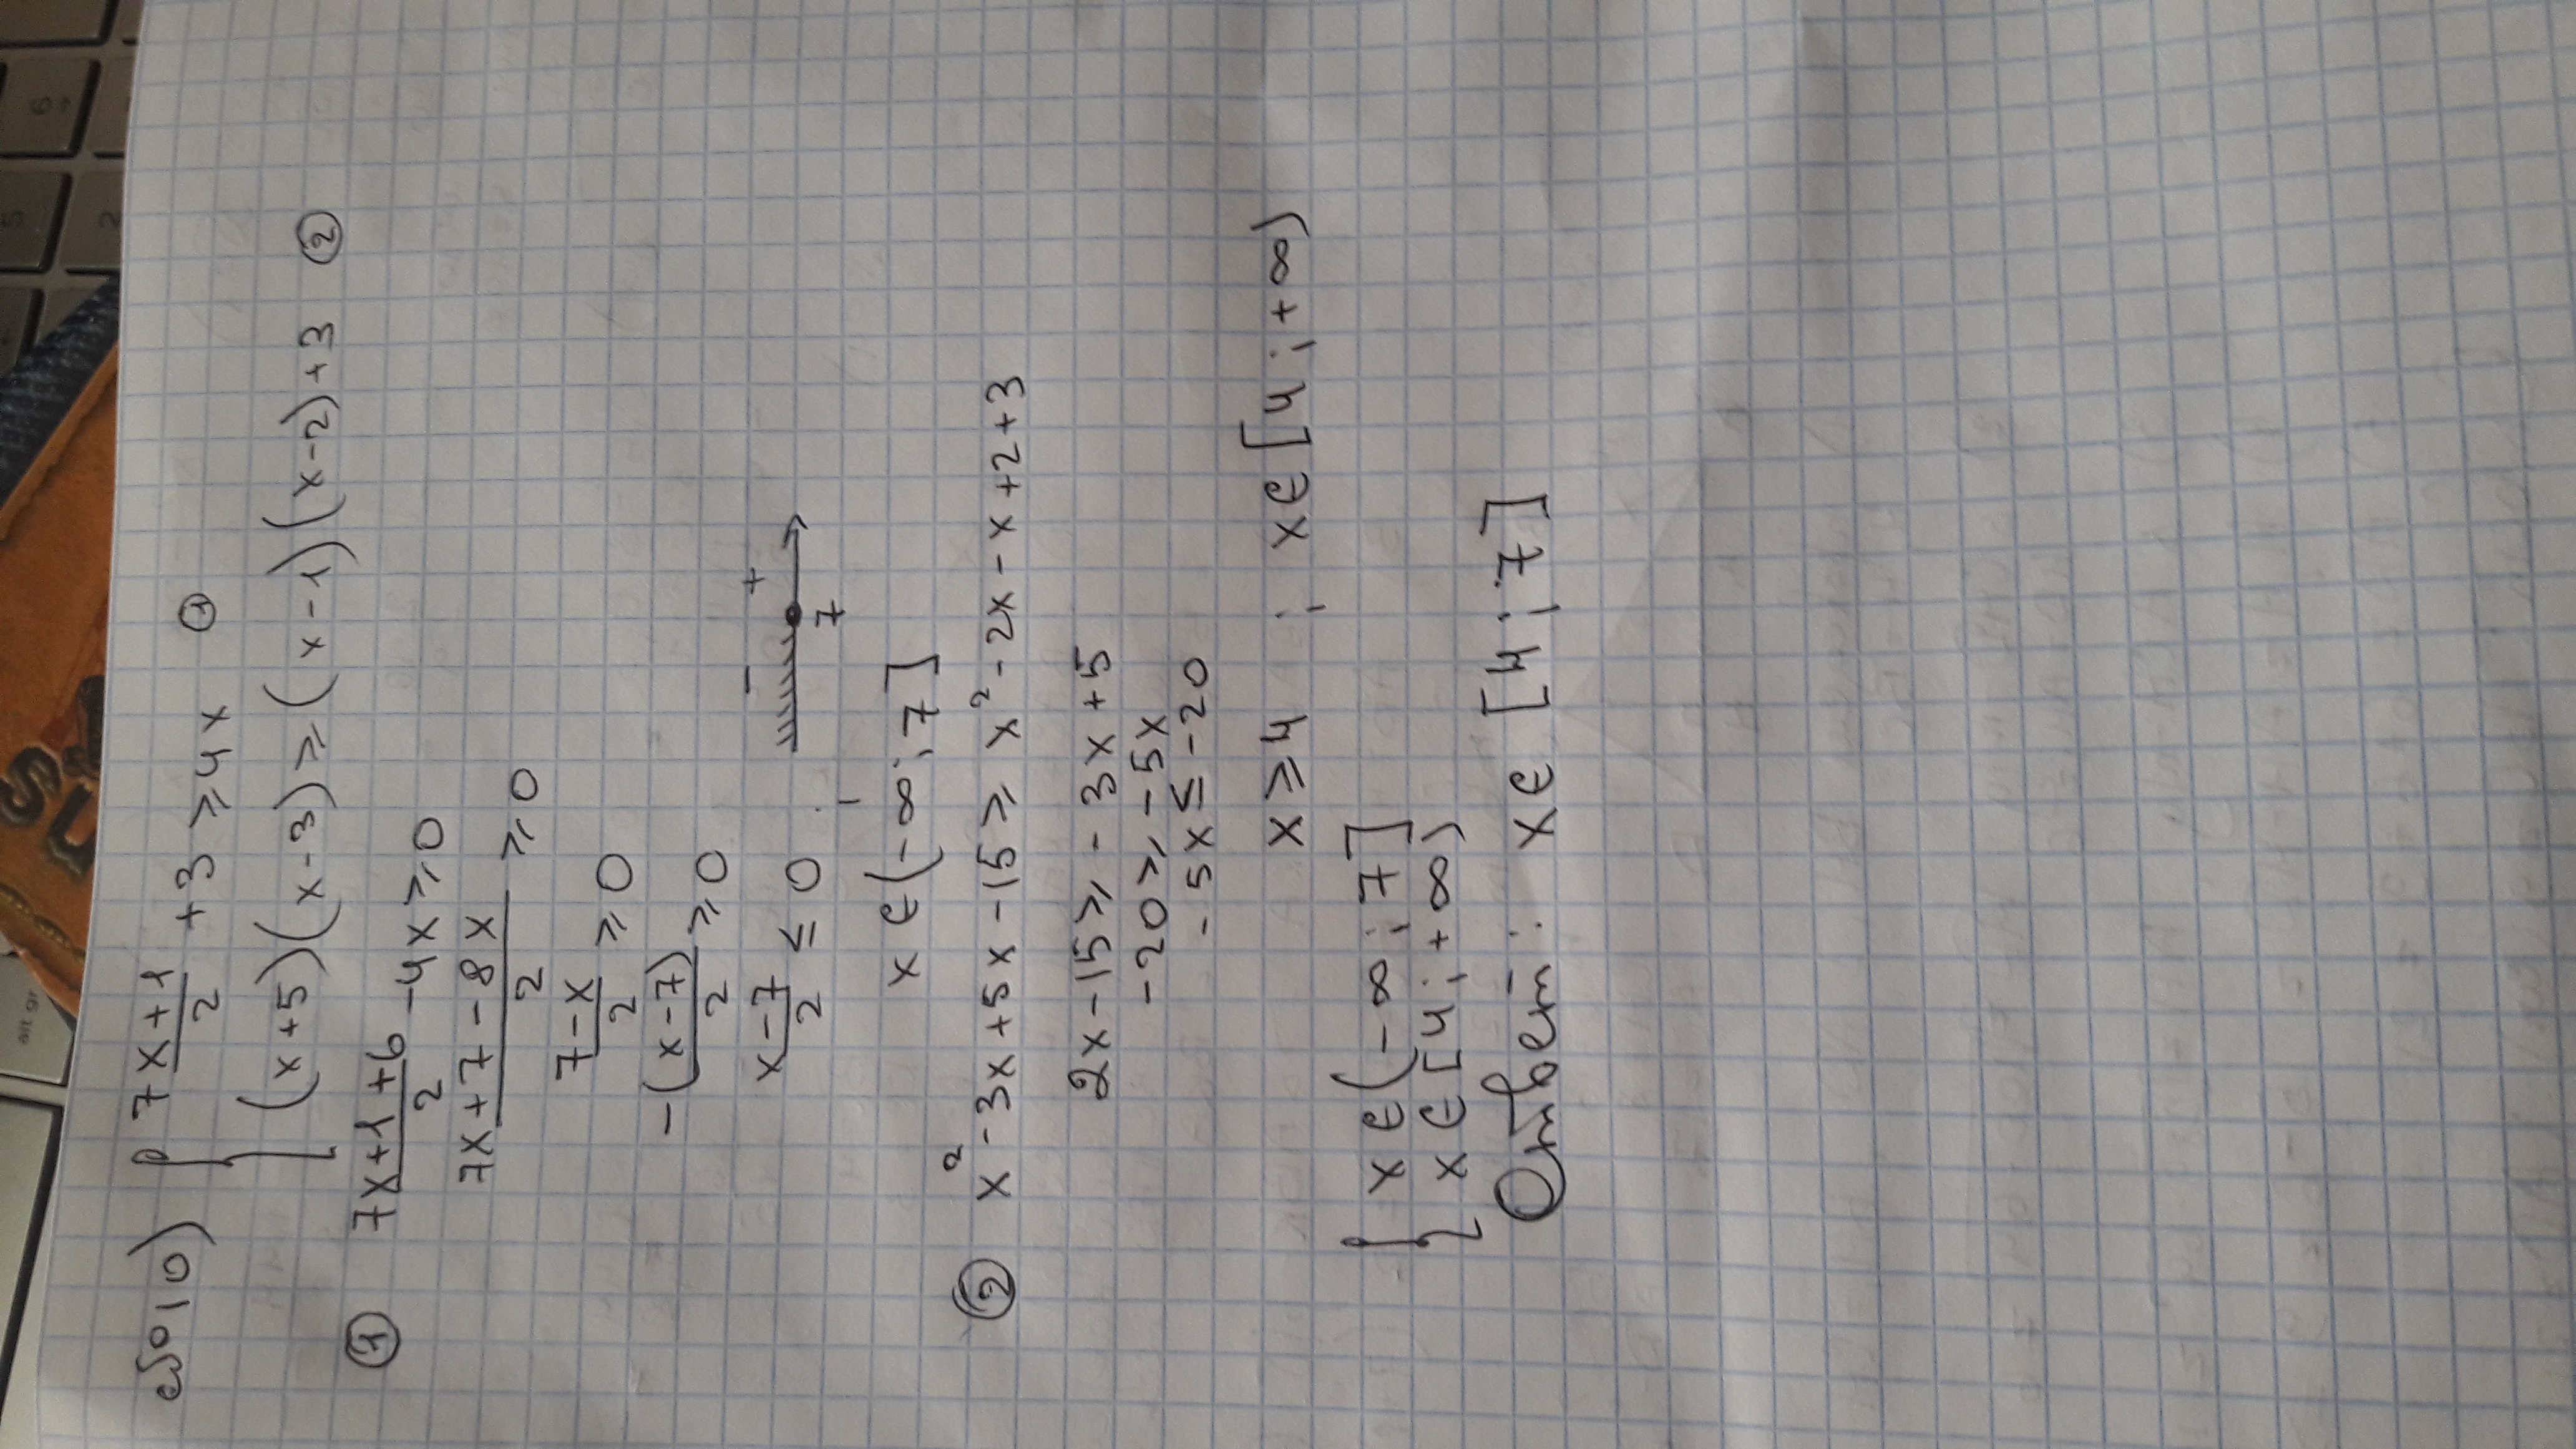 №10) { (7x+1)/2 +3 ⩾ 4x ①
(x+5)(x-3) ⩾ (x-1)(x-2)+3 ②
① (7x+1+6)/2 -4x ⩾ 0
(7x+7-8x)/2 ⩾ 0
(7-x)/2 ⩾ 0
(-(x-7))/2 ⩾ 0
(x-7)/2 ≤ 0 ; - + 7
x ∈ (-∞; 7]
② x² -3x+5x-15 ⩾ x² -2x -x +2+3
2x -15 ⩾ -3x+5
-20 ⩾ -5x
-5x ≤ -20
x ⩾ 4 ; x ∈ [4; +∞)
{ x ∈ (-∞; 7]
x ∈ [4; +∞)
Ответ: x ∈ [4; 7]